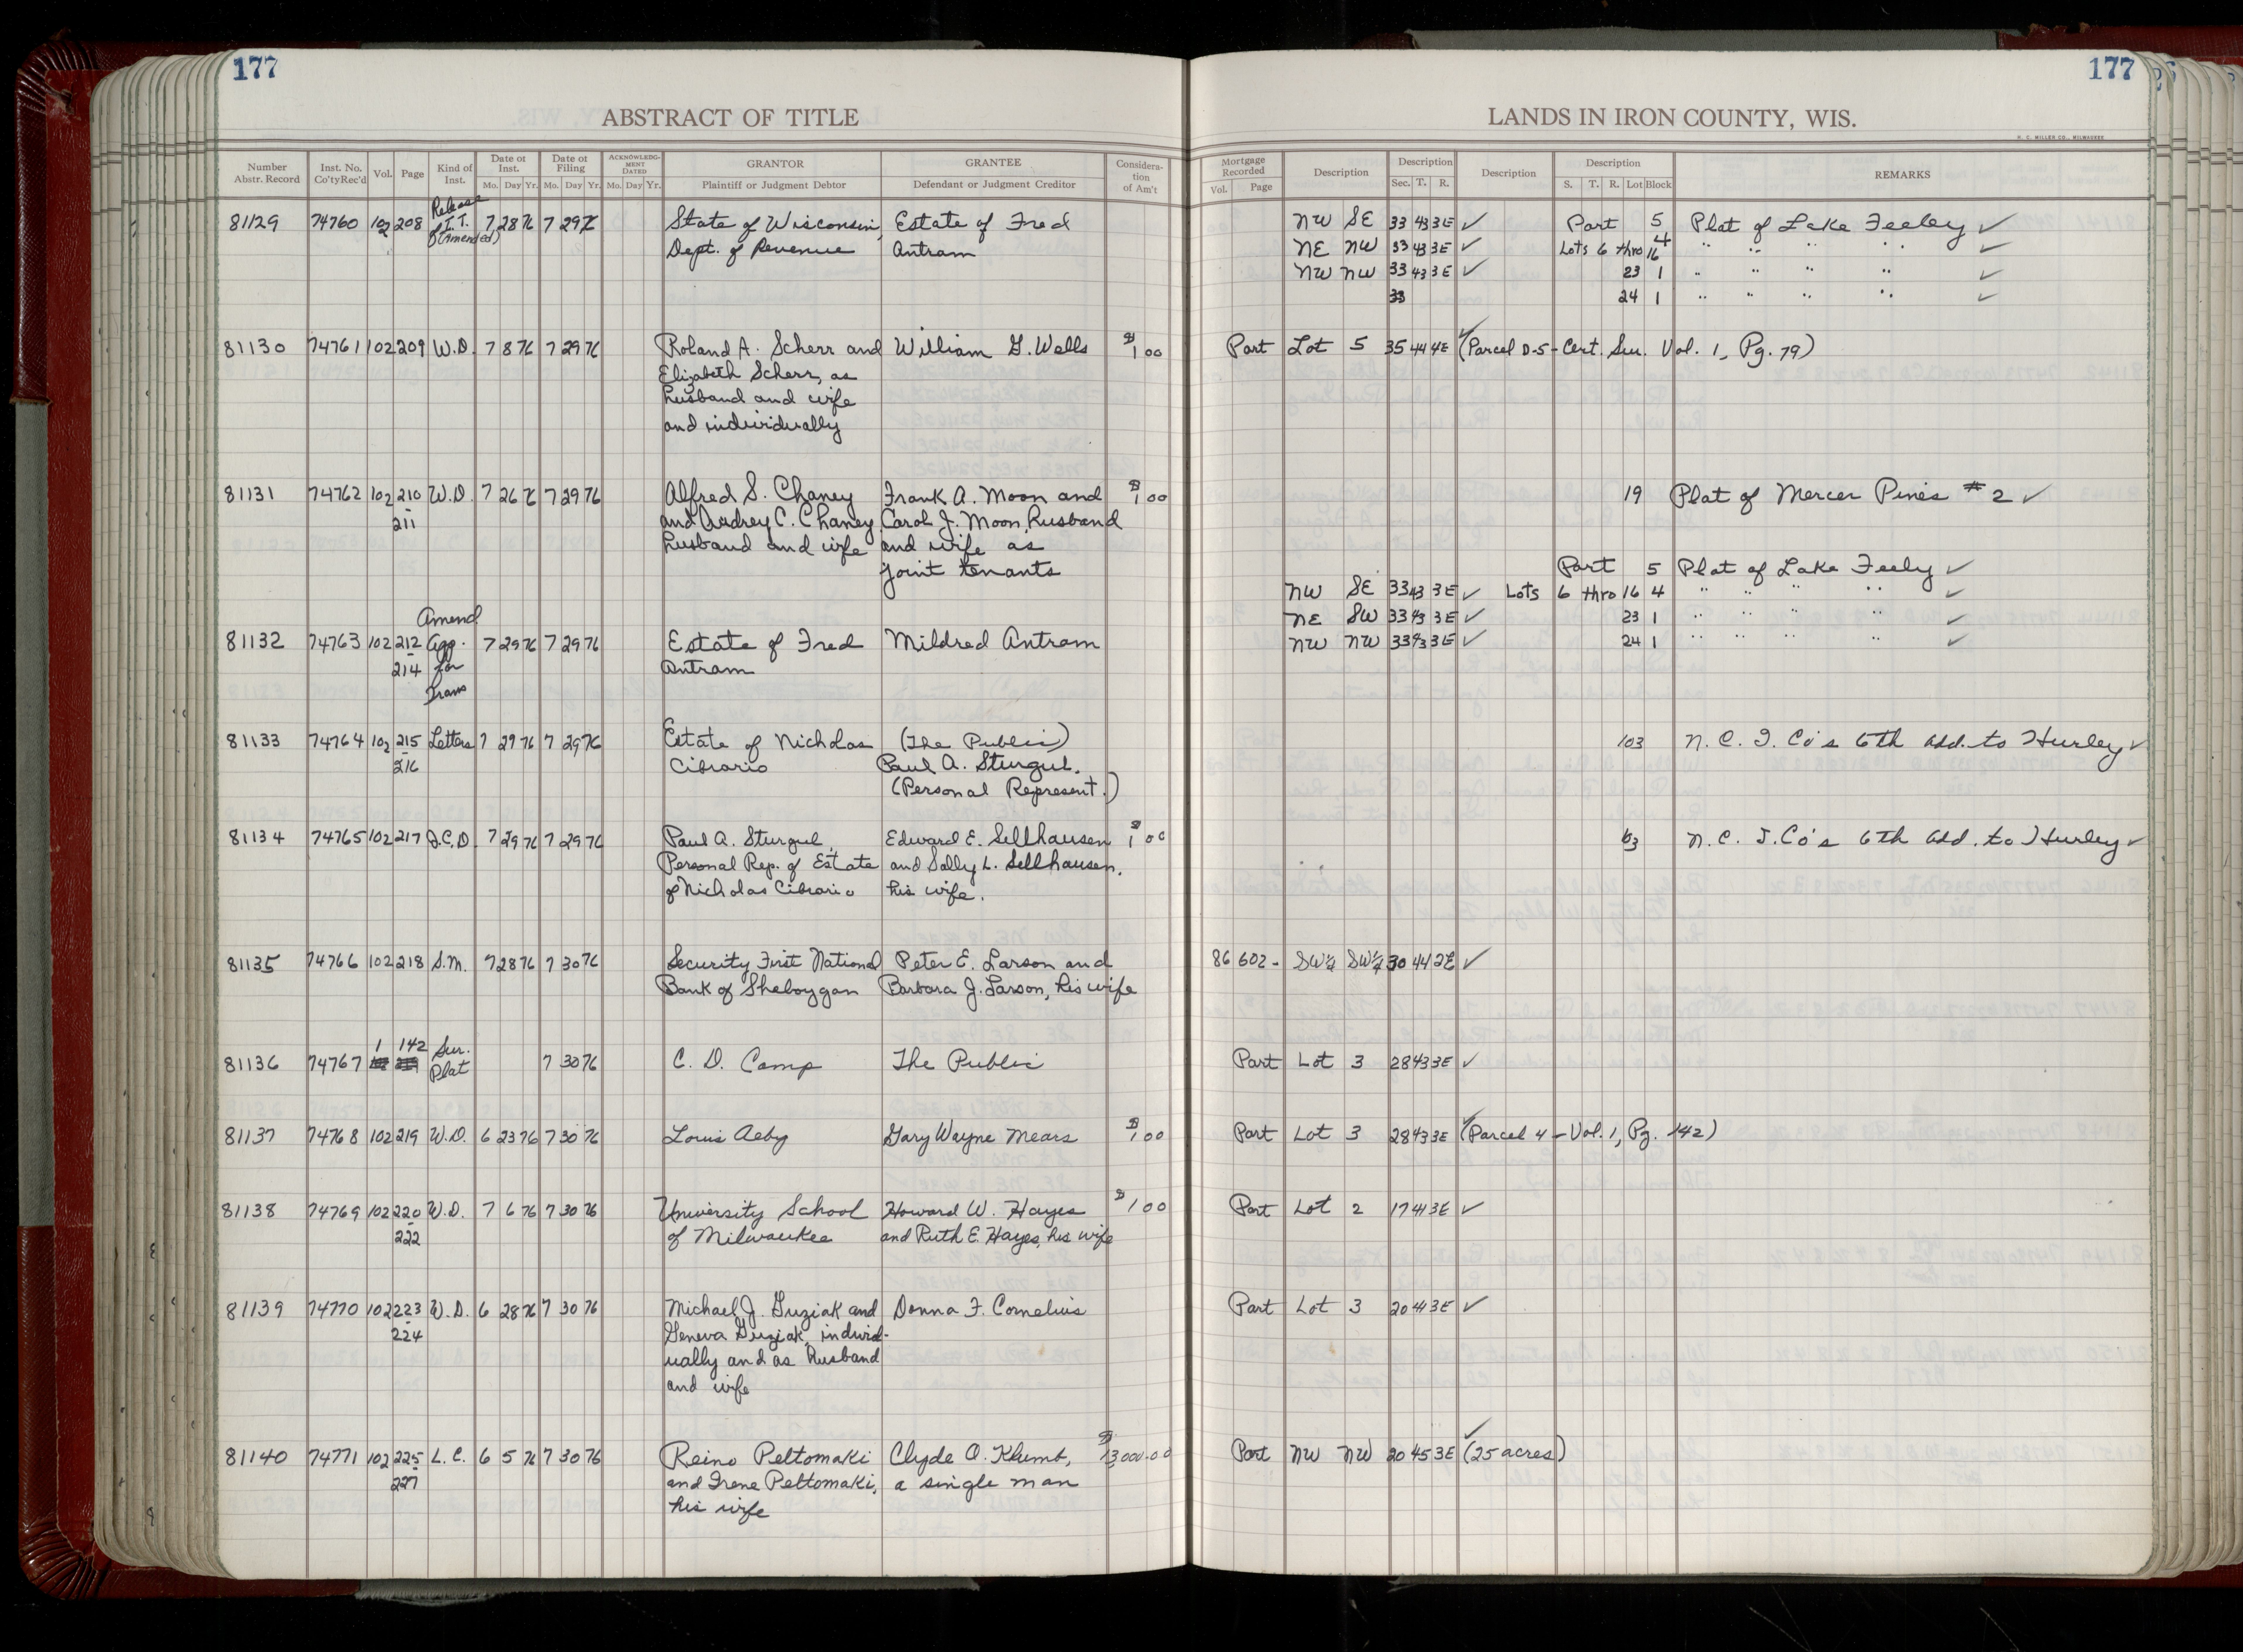 177
ABSTRACT OF TITLE
Number Abstr. Record | Inst. No. Co'tyRec'd | Vol. | Page | Kind of Inst. | Date of Inst. Mo. Day Yr. | Date of Filing Mo. Day Yr. | ACKNOWLEDGMENT DATED Mo. Day Yr. | GRANTOR Plaintiff or Judgment Debtor | GRANTEE Defendant or Judgment Creditor | Consideration of Am't
Release
81129 74760 102 208 I.T. 7 28 76 7 29 76 State of Wisconsin, Estate of Fred
of (Amended) Dept. of Revenue Antram
81130 74761 102 209 W.D. 7 8 76 7 29 76 Roland A. Scherr and William G. Wells $1 00
Elizabeth Scherr, as
husband and wife
and individually
81131 74762 102 210 W.D. 7 26 76 7 29 76 Alfred S. Chaney Frank A. Moon and $1 00
- 211 and Audrey C. Chaney, Carol J. Moon, husband
husband and wife and wife as
joint tenants
Amend.
81132 74763 102 212 App. 7 29 76 7 29 76 Estate of Fred Mildred Antram
- 214 for Antram
Trans
81133 74764 102 215 Letters 7 29 76 7 29 76 Estate of Nicholas (The Public)
- 216 Cibrario Paul A. Sturgul.
(Personal Represent.)
81134 74765 102 217 J.C.D. 7 29 76 7 29 76 Paul A. Sturgul, Edward E. Sellhausen $1 00
Personal Rep. of Estate and Sally L. Sellhausen,
of Nicholas Cibrario his wife.
81135 74766 102 218 S.M. 7 28 76 7 30 76 Security First National Peter E. Larson and
Bank of Sheboygan Barbara J. Larson, his wife
1 142 Sur.
81136 74767 Plat 7 30 76 C. D. Camp The Public
81137 74768 102 219 W.D. 6 23 76 7 30 76 Louis Aeby Gary Wayne Mears $1 00
81138 74769 102 220 W.D. 7 6 76 7 30 76 University School Howard W. Hayes $1 00
- 222 of Milwaukee and Ruth E. Hayes, his wife
81139 74770 102 223 W.D. 6 28 76 7 30 76 Michael J. Guziak and Donna F. Cornelius
- 224 Geneva Guziak, individ-
ually and as husband
and wife
81140 74771 102 225 L.C. 6 5 76 7 30 76 Reino Peltomaki Clyde A. Klumb, $13,000.00
- 227 and Irene Peltomaki, a single man
his wife
177
LANDS IN IRON COUNTY, WIS.
H. C. MILLER CO., MILWAUKEE
Mortgage Recorded Vol. Page | Description | Description Sec. T. R. | Description | Description S. T. R. Lot Block | REMARKS
NW SE 33 43 3E ✓ Part 5 Plat of Lake Feeley ✓
NE NW 33 43 3E ✓ Lots 6 thro 16 4 " " " " ✓
NW NW 33 43 3E ✓ 23 1 " " " " ✓
33 24 1 " " " " ✓
Part Lot 5 35 44 4E ✓ (Parcel D-5 - Cert. Sur. Vol. 1, Pg. 79)
19 Plat of Mercer Pines #2 ✓
Part 5 Plat of Lake Feely ✓
NW SE 33 43 3E ✓ Lots 6 thro 16 4 " " " " ✓
NE SW 33 43 3E ✓ 23 1 " " " " ✓
NW NW 33 43 3E ✓ 24 1 " " " " ✓
103 N. C. I. Co's 6th Add. to Hurley ✓
N. C. I. Co's 6th Add. to Hurley ✓
86 602 - SW¼ SW¼ 30 44 2E ✓
Part Lot 3 28 43 3E ✓
Part Lot 3 28 43 3E ✓ (Parcel 4 - Vol. 1, Pg. 142)
Part Lot 2 17 41 3E ✓
Part Lot 3 20 41 3E ✓
Part NW NW 20 45 3E ✓ (25 acres)